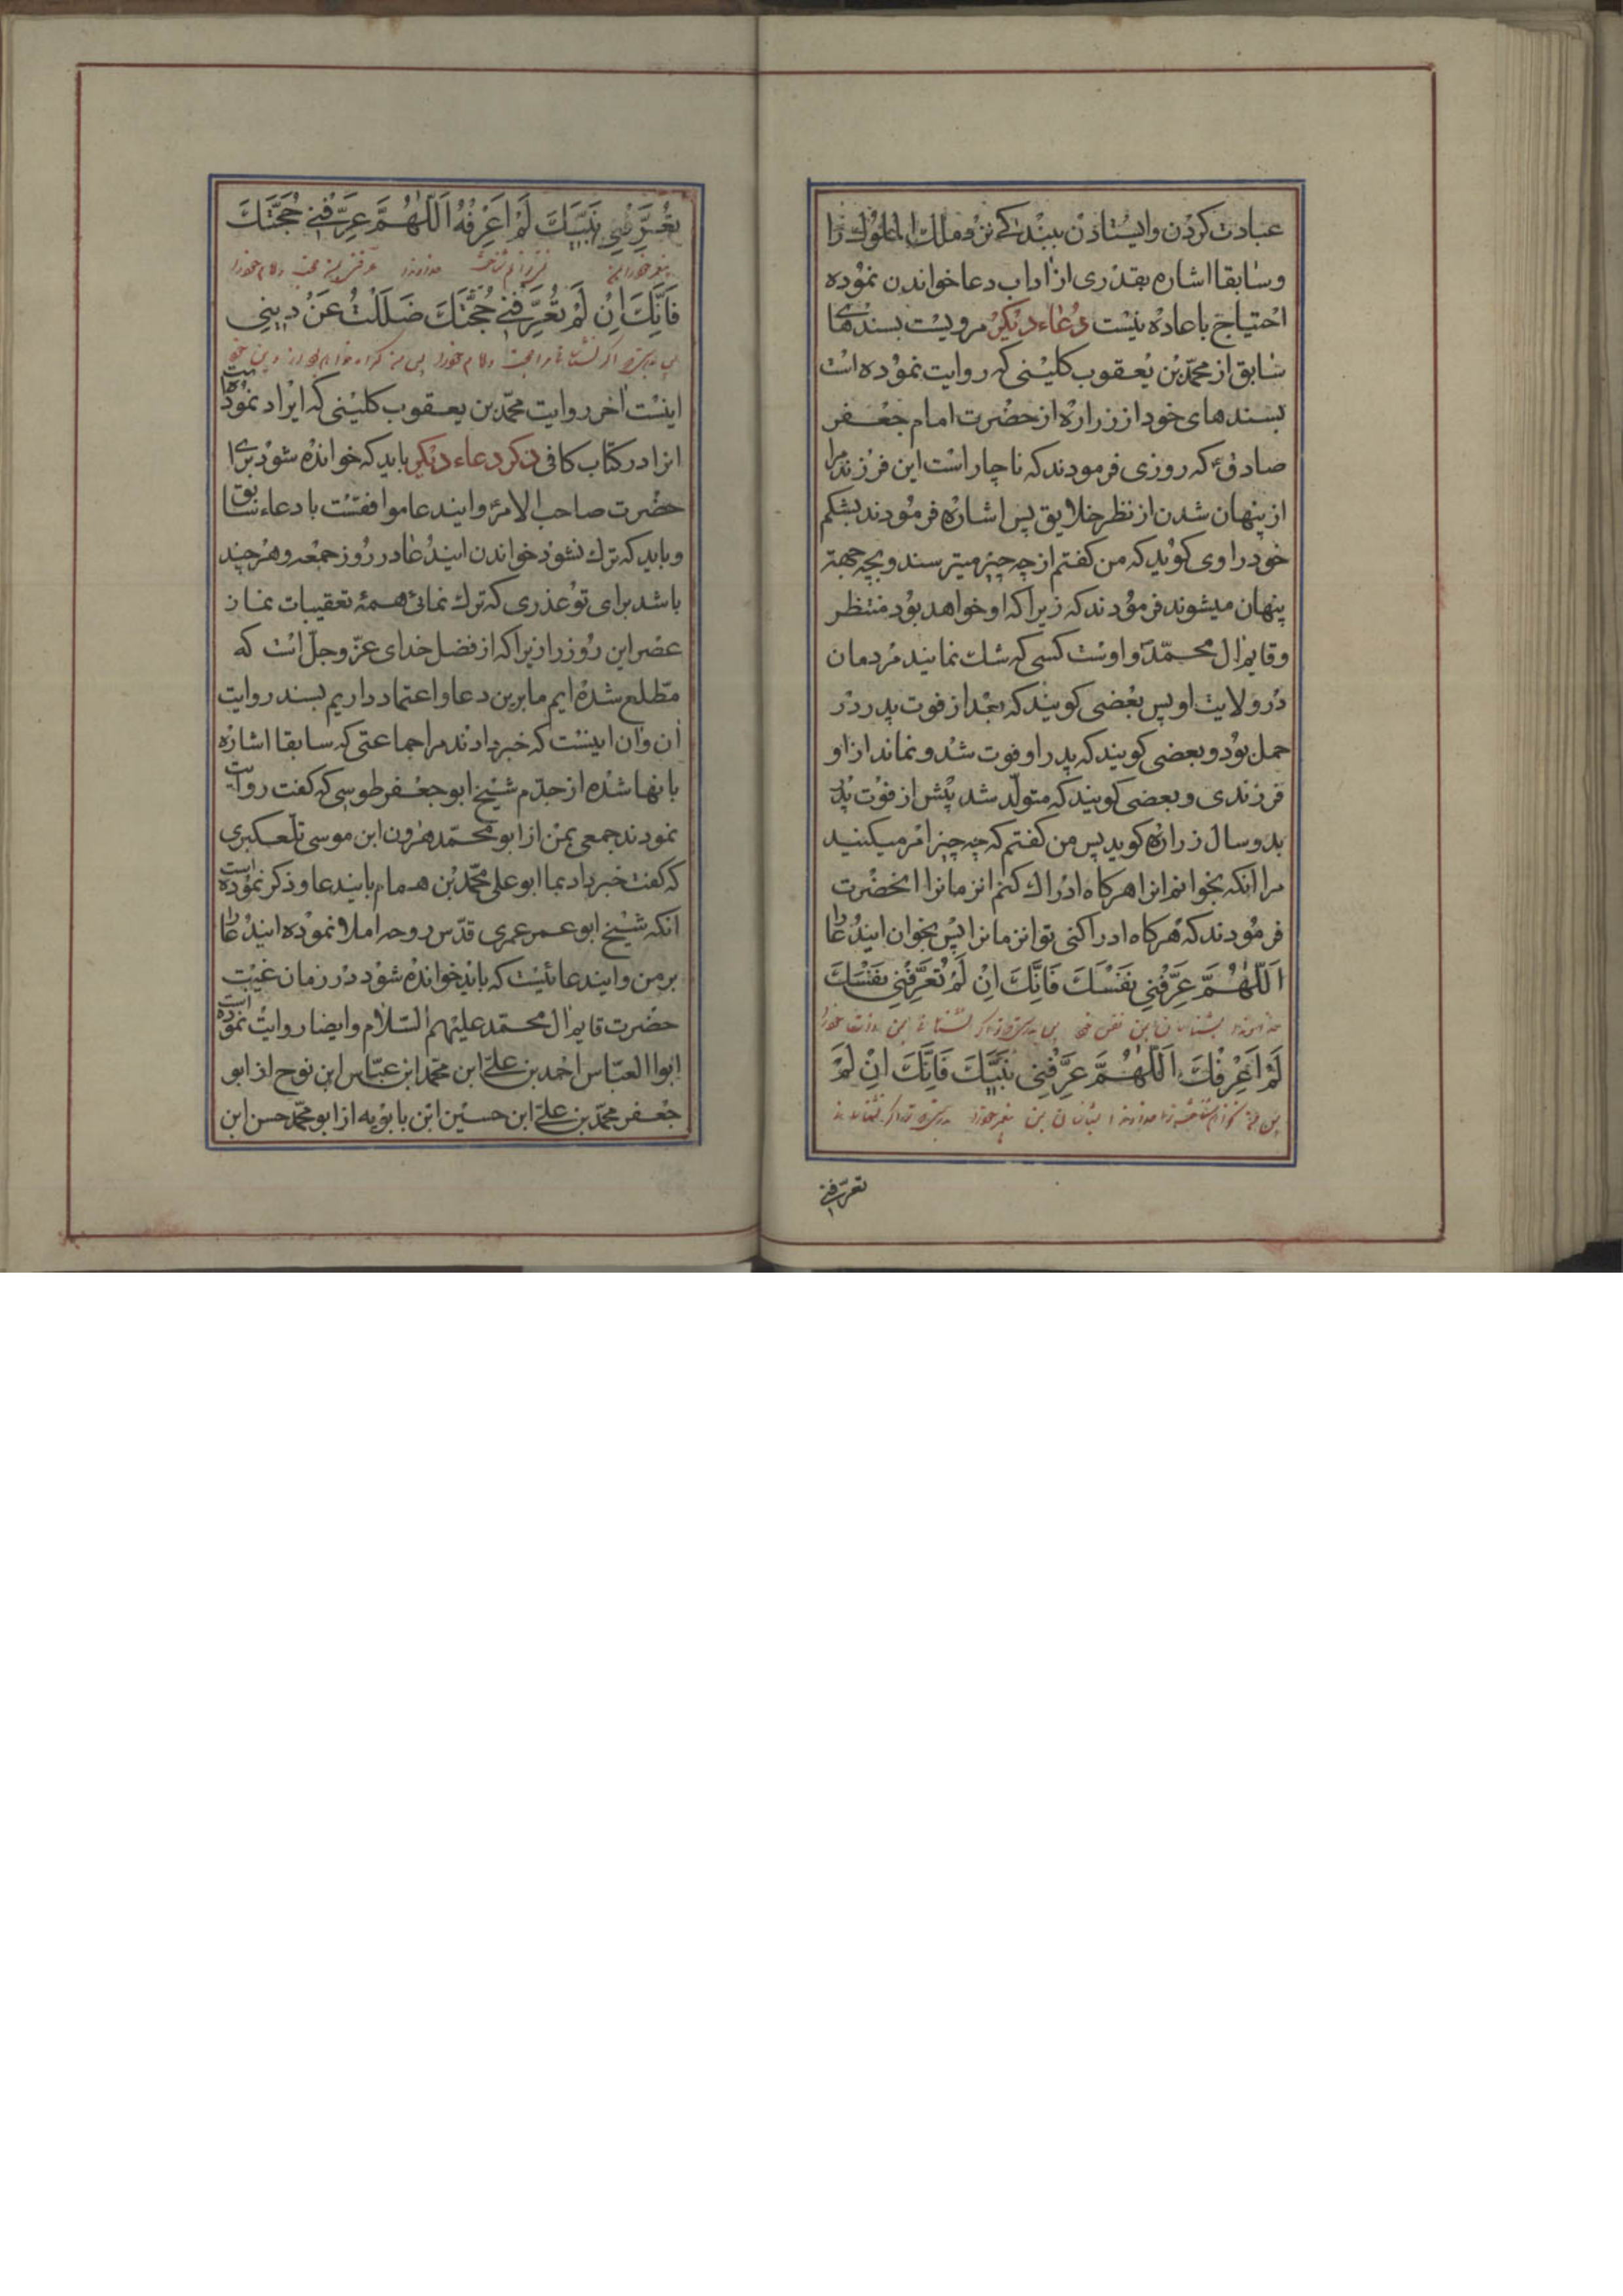 عبادت کردن و ایستادن ببندکے نزد ملك الملوك را
وسابقا اشاره بقدری از اداب دعا خواندن نموده
احتیاج باعاده نیست دعاء دیکر مرویست بسندهای
سابق از محمّد بن یعقوب کلینی که روایت نموده است
بسندهای خود از زراره از حضرت امام جعفر
صادق ع که روزی فرمودند که ناچار است این فرزند مرا
از پنهان شدن از نظر خلایق پس اشاره فرمودند بشکم
خود راوی کوید که من کفتم از چه چیز میترسند و بچه جهة
پنهان میشوند فرمودند که زیرا که او خواهد بود منتظر
وقایم ال محمّد و اوست کسی که شك نمایند مردمان
در ولایت او پس بعضی کویند که بعد از فوت پدر در
حمل بود و بعضی کویند که پدر او فوت شد و نماند از او
فرزندی و بعضی کویند که متولّد شد پیش از فوت پدر
بدو سال زراره کوید پس من کفتم که چه چیز امر میکنید
مرا انکه بخوانم انرا هرکاه ادراك کنم انزمانرا انحضرت
فرمودند که هرکاه ادراکنی تو انزمانرا پس بخوان ایندعا را
اَللّٰهُمَّ عَرِّفْنِی نَفْسَكَ فَاِنَّكَ اِنْ لَمْ تُعَرِّفْنِی نَفْسَكَ
لَمْ اَعْرِفْكَ اَللّٰهُمَّ عَرِّفْنِی نَبِیَّكَ فَاِنَّكَ اِنْ لَمْ
تعرّفنے
تُعَرِّفْنِی نَبِیَّكَ لَمْ اَعْرِفْهُ اَللّٰهُمَّ عَرِّفْنِے حُجَّتَكَ
فَاِنَّكَ اِنْ لَمْ تُعَرِّفْنِے حُجَّتَكَ ضَلَلْتُ عَنْ دِینِی
اینست اخر روایت محمّد بن یعقوب کلینی که ایراد نموده است
انرا در کتاب کافی ذکر دعاء دیکر باید که خوانده شود برای
حضرت صاحب الامر و ایندعا موافقست با دعاء سابق
و باید که ترك نشود خواندن ایندعا در روز جمعه و هرچند
باشد برای تو عذری که ترك نمائی همهٔ تعقیبات نماز
عصر این روز را زیرا که از فضل خدای عزّ وجلّ است که
مطّلع شده ایم ما برین دعا و اعتماد داریم بسند روایت
ان و ان اینست که خبر دادند مرا جماعتی که سابقا اشاره
بانها شده از جدّم شیخ ابو جعفر طوسی که کفت روایت
نمودند جمعی بمن از ابو محمّد هرون ابن موسی تلعکبری
که کفت خبر داد بما ابو علی محمّد بن همام بایندعا و ذکر نموده است
انکه شیخ ابو عمر عمری قدّس روحه املا نموده ایندعا را
بر من و ایندعائیست که باید خوانده شود در زمان غیبت
حضرت قایم ال محمّد علیهم السّلام و ایضا روایت نموده است
ابوا العبّاس احمد بن علے ابن محمّد ابن عبّاس ابن نوح از ابو
جعفر محمّد بن علے ابن حسین ابن بابویه از ابو محمّد حسن ابن